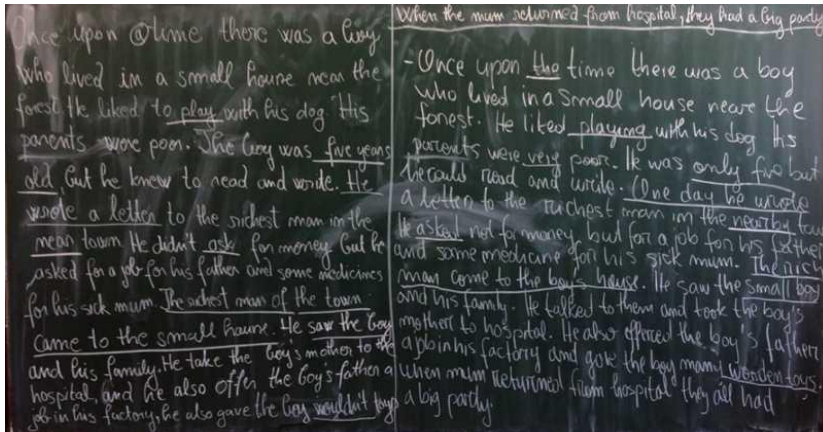 Once upon @ time there was a boy
who lived in a small house near the
forest. He liked to play with his dog. His
parents were poor. The boy was five years
old, but he knew to read and write. He
wrote a letter to the richest man in the
near town. He didn't ask for money but he
asked for a job for his father and some medicines
for his sick mum. The richest man of the town
came to the small house. He saw the boy
and his family. He take the boy's mother to the
hospital, and he also offer the boy's father a
job in his factory, he also gave the boy wouldn't toys
When the mum returned from hospital, they had a big party
- Once upon the time there was a boy
who lived in a small house neare the
forest. He liked playing with his dog His
parents were very poor. He was only five but
he could read and write. One day he wrote
a letter to the richest man in the nearby tow
He asked not for money but for a job for his father
and some medicine for his sick mum. The rich
man come to the boy's house. He saw the small boy
and his family. He talked to them and took the boy's
mother to hospital. He also offered the boy's father
a job in his factory and gave the boy many wooden toys.
when mum returned from hospital they all had
a big party.